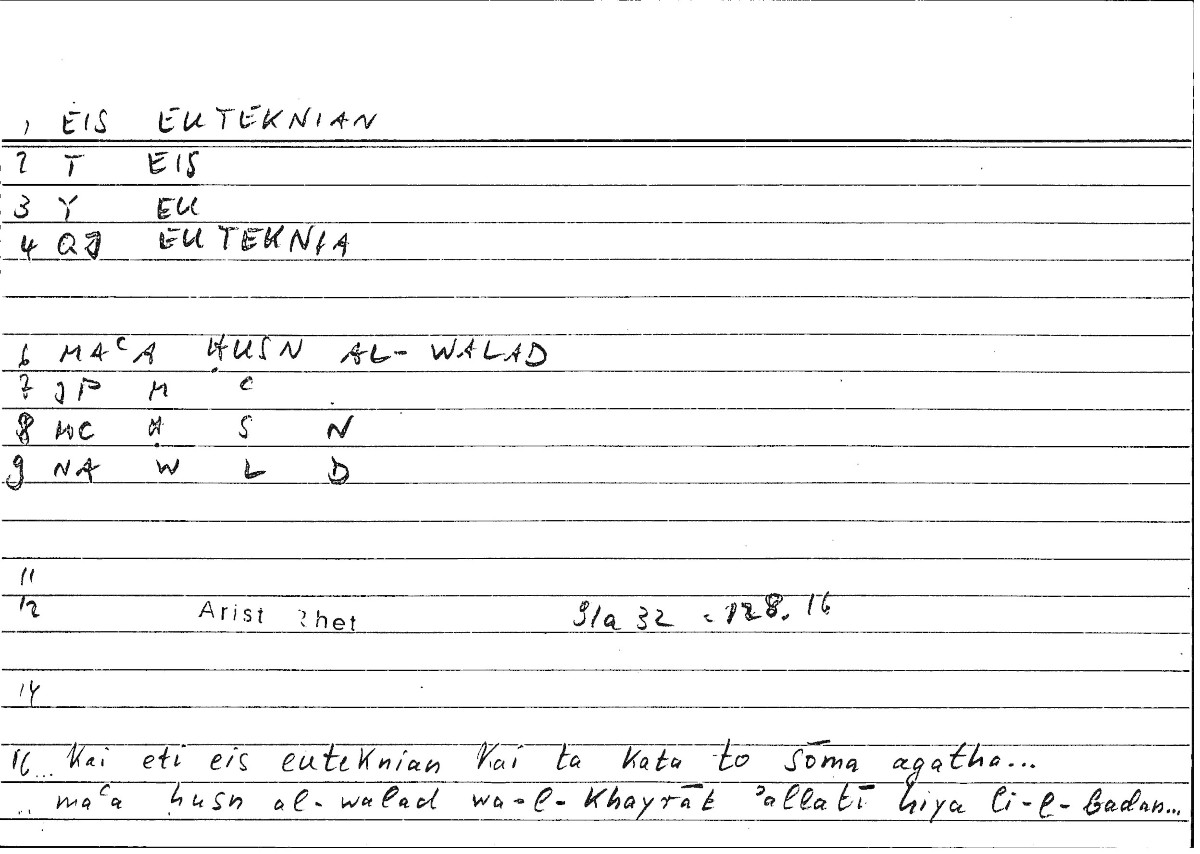 1 EIS EUTEKNIAN
2 T EIS
3 Y EU
4 QJ EUTEKNIA
6 MAᶜA ḤUSN AL-WALAD
7 JP M ᶜ
8 MC Ḥ S N
9 NA W L D
11
12 Arist Rhet 91a 32 = 128.16
14
16 ... Kai eti eis euteknian kai ta kata to sōma agatha...
... maᶜa ḥusn al-walad wa-l-khayrāt ʾallatī hiya li-l-badan...